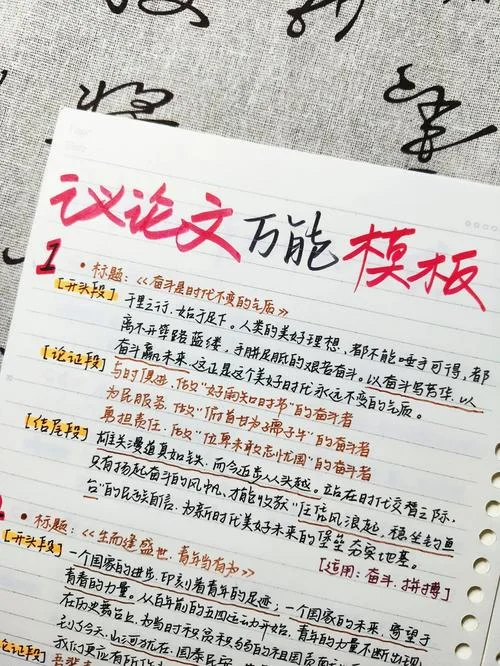 议论文万能模板
1
• 标题:《奋斗是时代不变的气质》
[开头段] 千里之行,始于足下。人类的美好理想,都不能唾手可得,都
离不开筚路蓝缕、手胼足胝的艰苦奋斗。以奋斗写芳华,以
奋斗赢未来,这正是这个美好时代永远不变的气质。
[论证段] 与时俱进,做"好雨知时节"的奋斗者
为民服务,做"俯首甘为孺子牛"的奋斗者
勇担责任,做"位卑未敢忘忧国"的奋斗者
[结尾段] 雄关漫道真如铁,而今迈步从头越。站在时代交替之际,
只有扬起奋斗的风帆,才能收获"任信风浪起,稳坐钓鱼
台"的民族自信,为新时代美好未来的堡垒夯实地基。
[适用:奋斗、拼搏]
• 标题:《生而逢盛世,青年当有为》
[开头段] 一个国家的进步,印刻着青年的足迹;一个国家的未来,寄望于
青春的力量。从百年前的五四运动开始,青年的力量不断出现
在历史舞台上,为当时积贫积弱的祖国
到了今天,山河犹在,国泰民安
我们更应有所作为
[论证段]